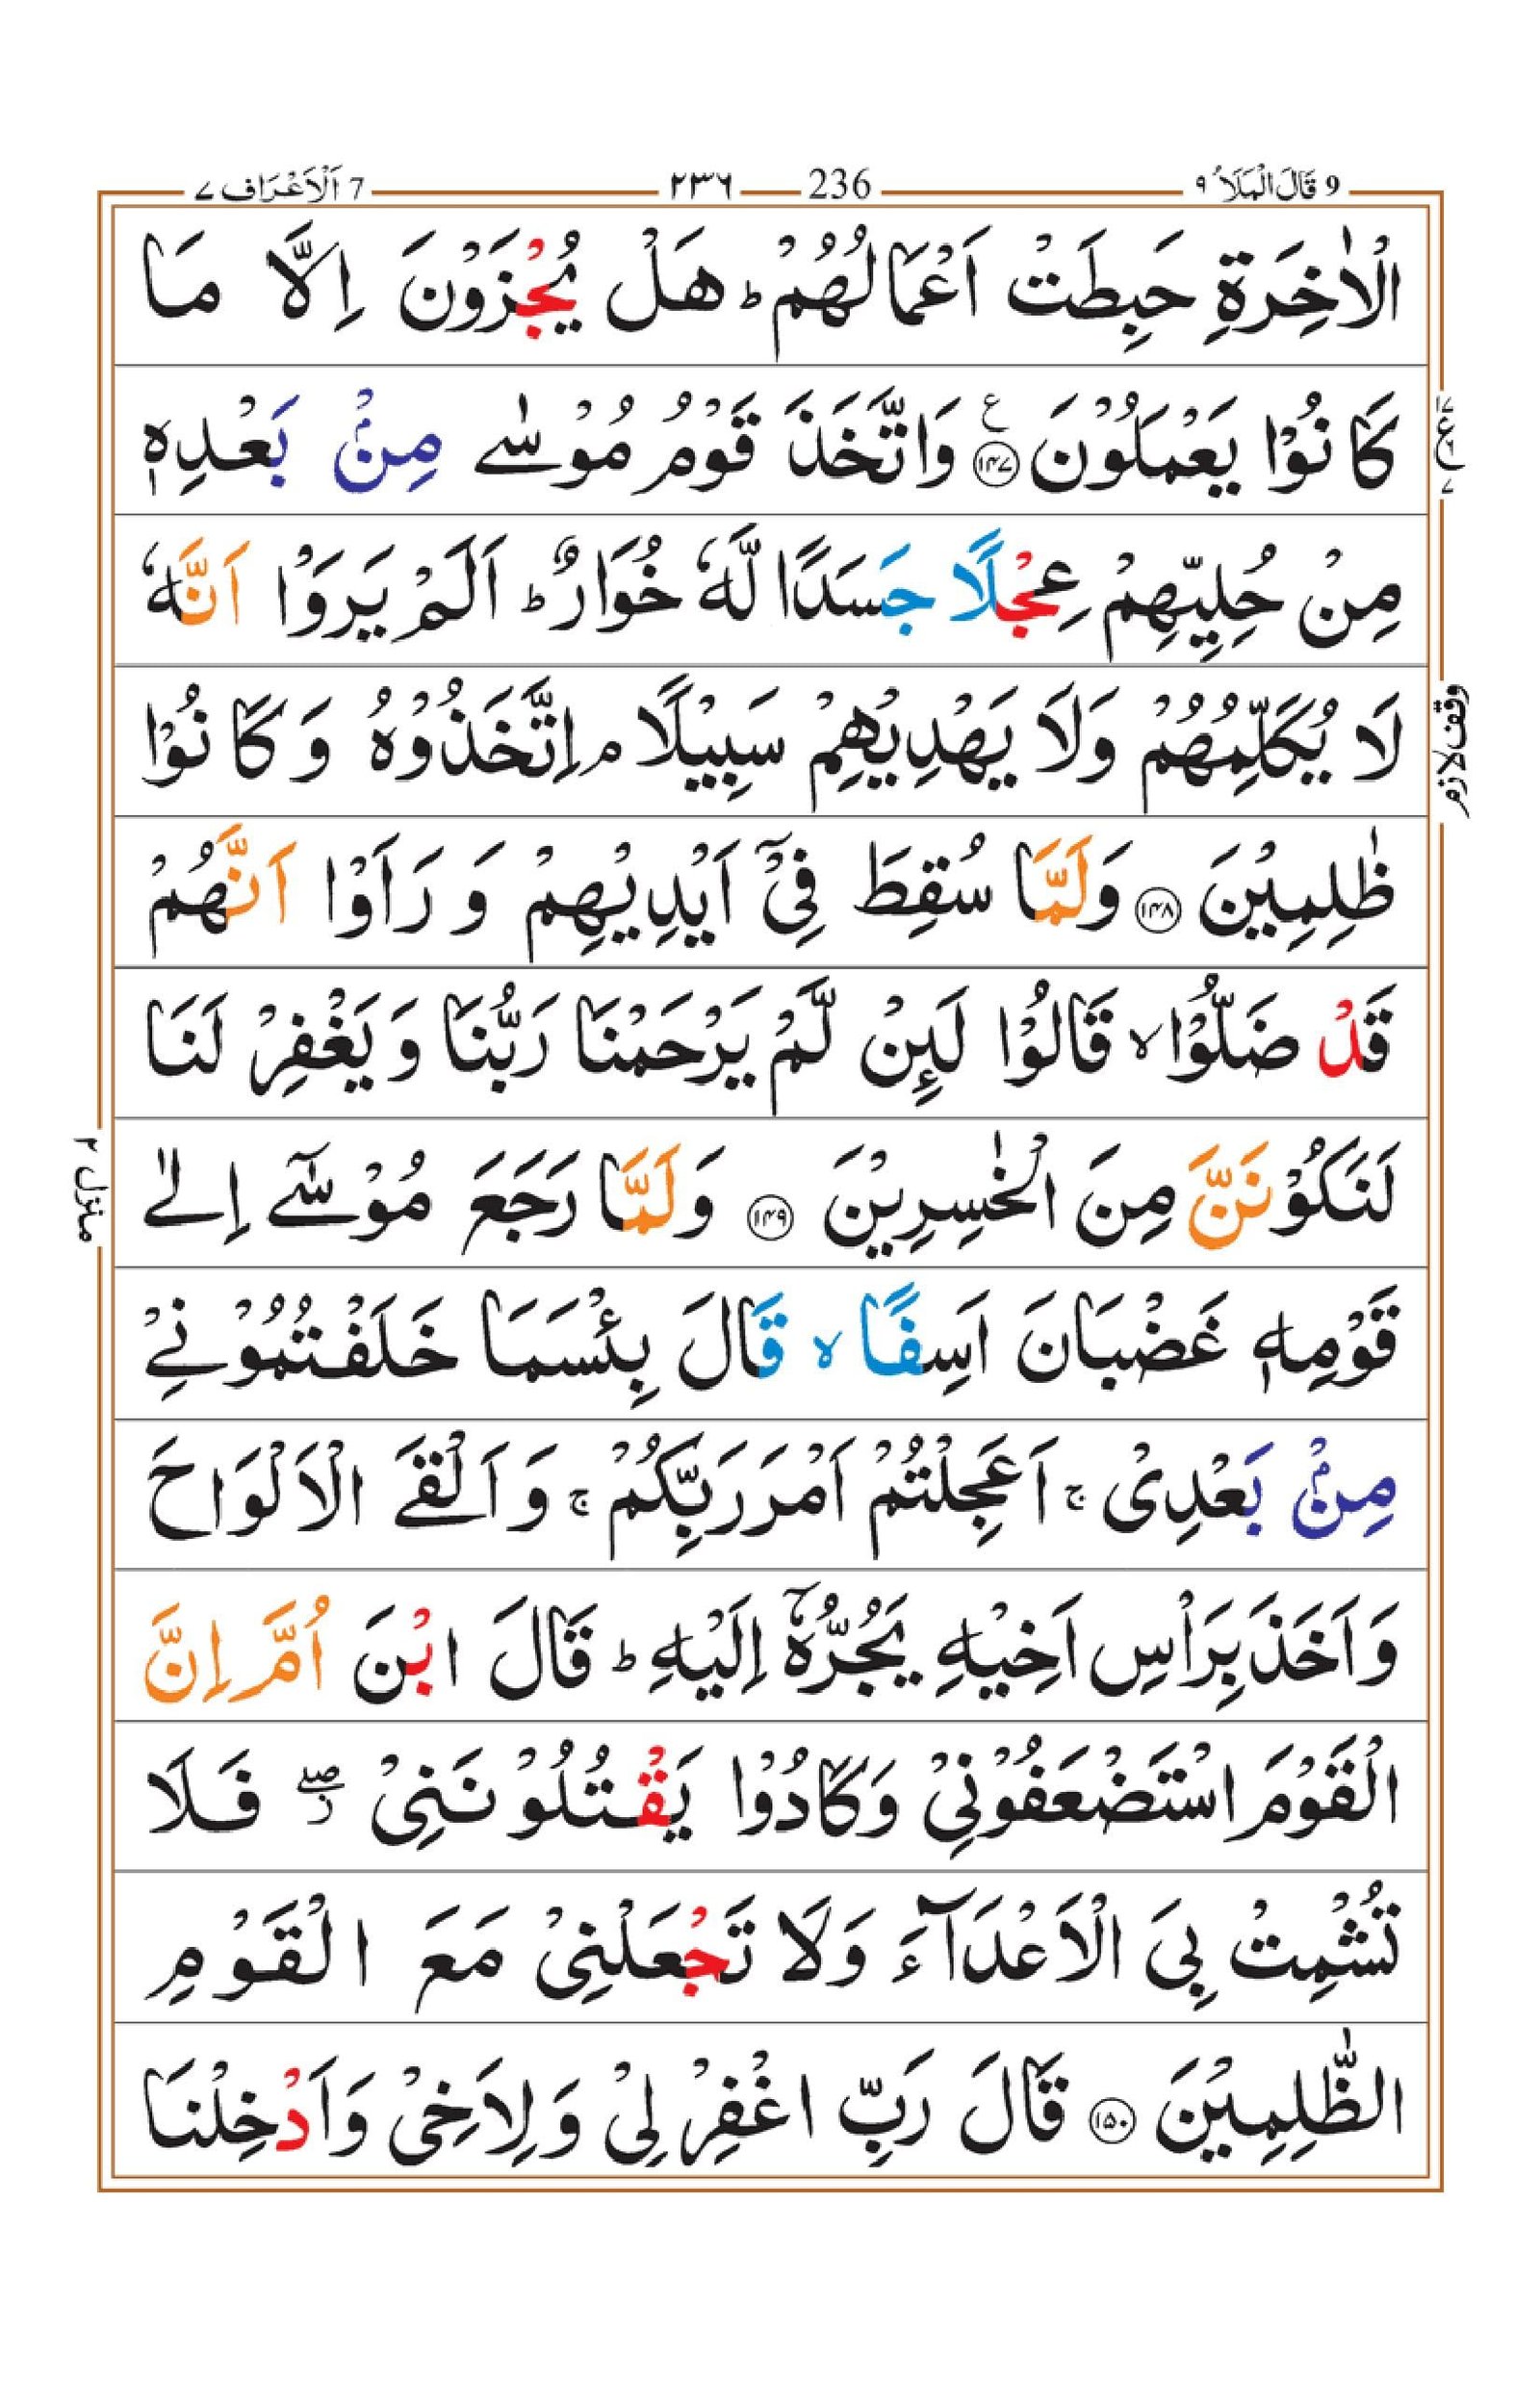 9 قَالَ الْمَلَاُ ۹ 236 ۲۳۶ 7 اَلْاَعْرَاف ۷
الْاٰخِرَةِ حَبِطَتْ اَعْمَالُهُمْ ؕ هَلْ يُجْزَوْنَ اِلَّا مَا
كَانُوْا يَعْمَلُوْنَ ﴿۱۴۷﴾ ع وَاتَّخَذَ قَوْمُ مُوْسٰى مِنْۢ بَعْدِهٖ
مِنْ حُلِيِّهِمْ عِجْلًا جَسَدًا لَّهٗ خُوَارٌ ؕ اَلَمْ يَرَوْا اَنَّهٗ
لَا يُكَلِّمُهُمْ وَلَا يَهْدِيْهِمْ سَبِيْلًا ۘ اِتَّخَذُوْهُ وَ كَانُوْا
ظٰلِمِيْنَ ﴿۱۴۸﴾ وَلَمَّا سُقِطَ فِيْۤ اَيْدِيْهِمْ وَ رَاَوْا اَنَّهُمْ
قَدْ ضَلُّوْا ۙ قَالُوْا لَىِٕنْ لَّمْ يَرْحَمْنَا رَبُّنَا وَ يَغْفِرْ لَنَا
لَنَكُوْنَنَّ مِنَ الْخٰسِرِيْنَ ﴿۱۴۹﴾ وَلَمَّا رَجَعَ مُوْسٰۤى اِلٰى
قَوْمِهٖ غَضْبَانَ اَسِفًا ۙ قَالَ بِئْسَمَا خَلَفْتُمُوْنِيْ
مِنْۢ بَعْدِيْ ۚ اَعَجِلْتُمْ اَمْرَ رَبِّكُمْ ۚ وَ اَلْقَى الْاَلْوَاحَ
وَ اَخَذَ بِرَاْسِ اَخِيْهِ يَجُرُّهٗۤ اِلَيْهِ ؕ قَالَ ابْنَ اُمَّ اِنَّ
الْقَوْمَ اسْتَضْعَفُوْنِيْ وَكَادُوْا يَقْتُلُوْنَنِيْ ۖز فَلَا
تُشْمِتْ بِيَ الْاَعْدَآءَ وَلَا تَجْعَلْنِيْ مَعَ الْقَوْمِ
الظّٰلِمِيْنَ ﴿۱۵۰﴾ قَالَ رَبِّ اغْفِرْ لِيْ وَ لِاَخِيْ وَ اَدْخِلْنَا
وقف لازم
منزل ۲